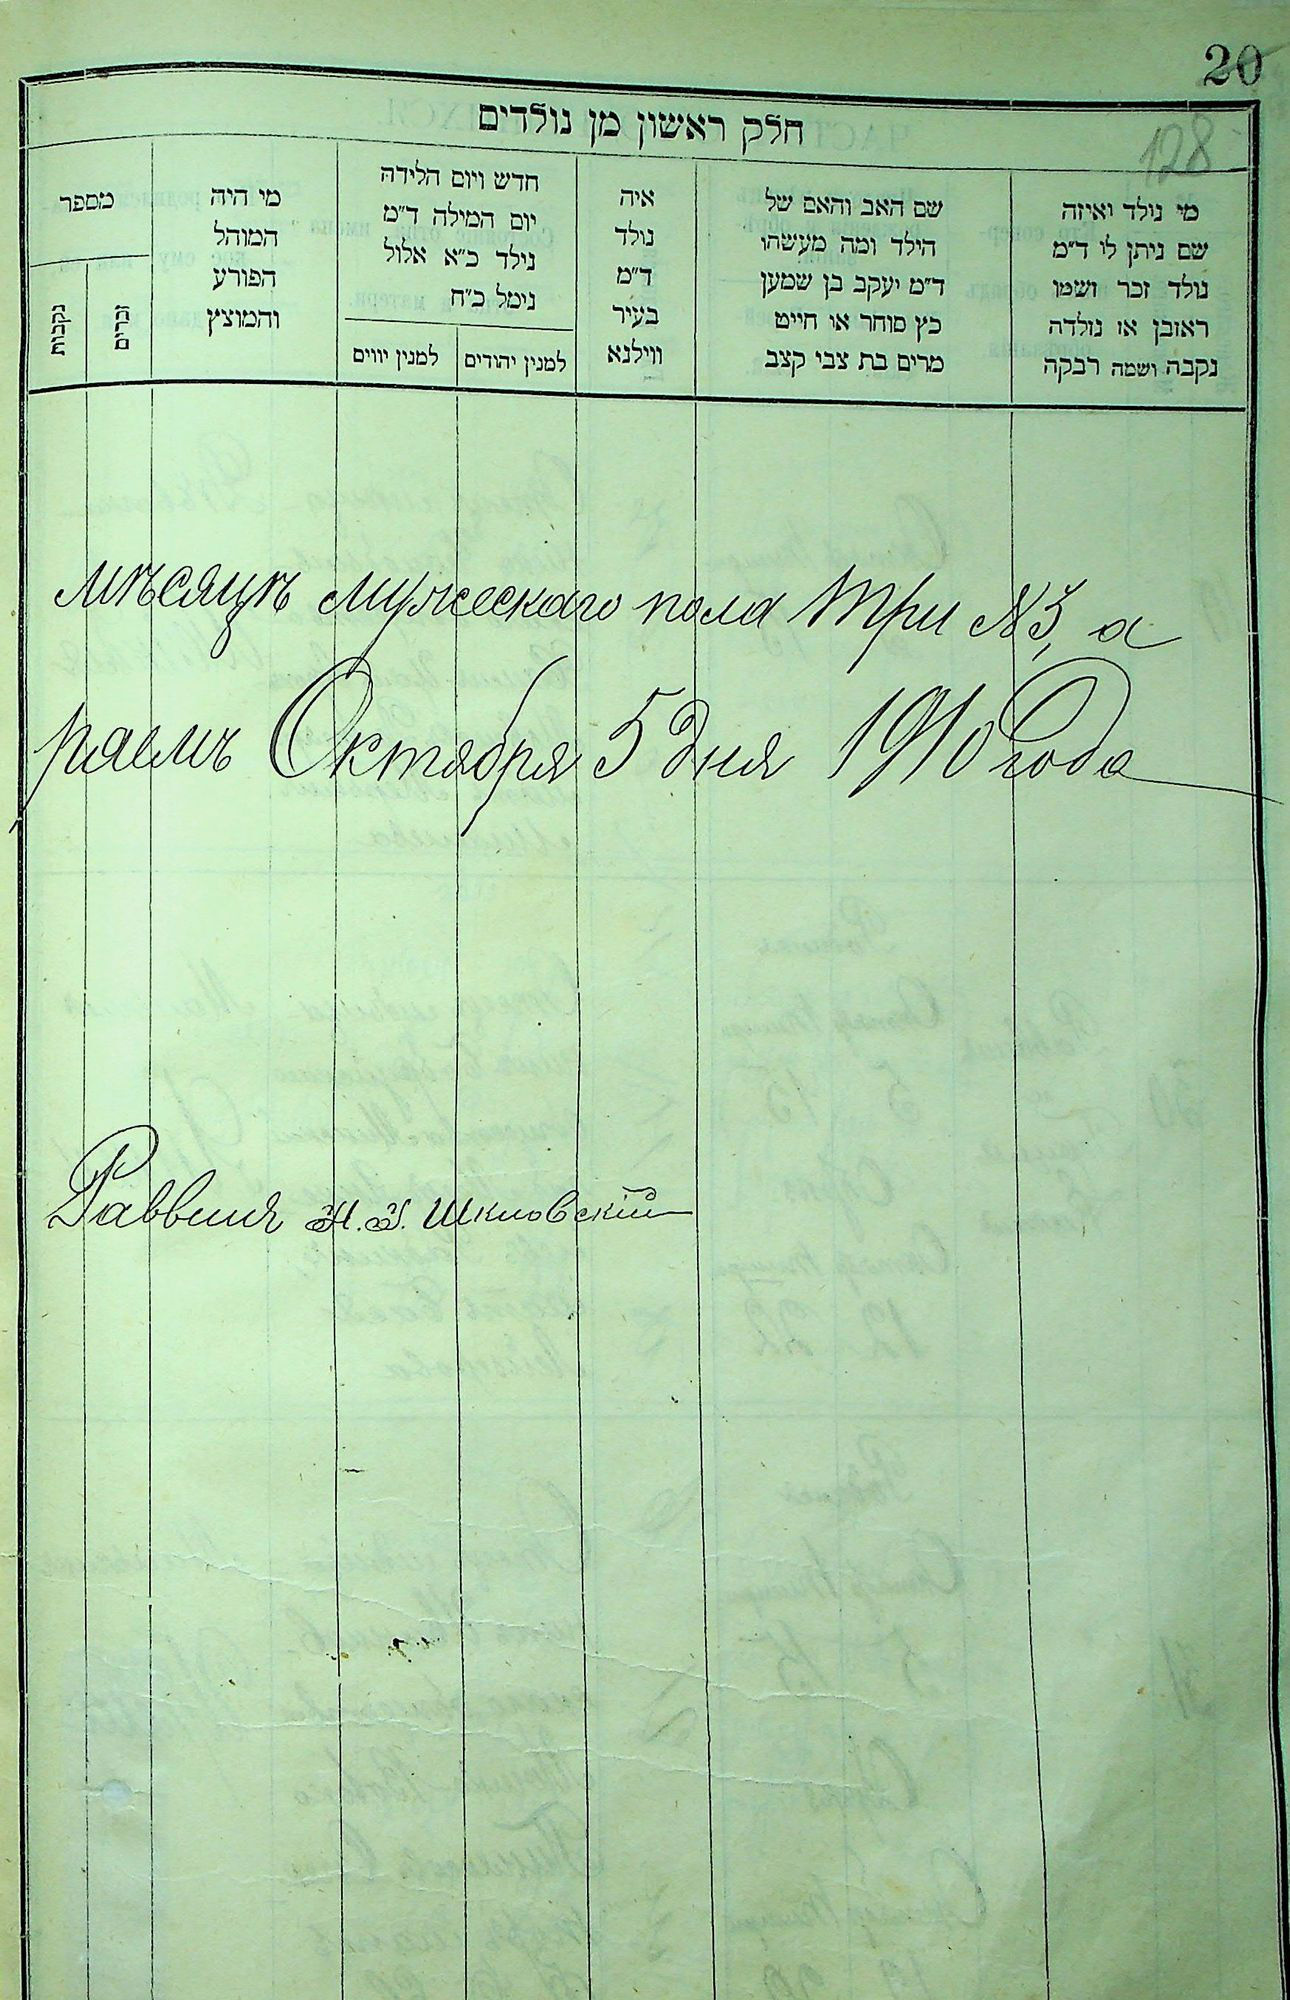 20
128
חלק ראשון מן נולדים
מי נולד ואיזה
שם ניתן לו ד״מ
נולד זכר ושמו
ראובן או נולדה
נקבה ושמה רבקה
שם האב והאם של
הילד ומה מעשהו
ד״מ יעקב בן שמעון
כץ סוחר או חייט
מרים בת צבי קצב
איה
נולד
ד״מ
בעיר
ווילנא
חדש ויום הלידה
יום המילה ד״מ
נילד כ״א אלול
נימל כ״ח
למנין יהודים
למנין יווים
מי היה
המוהל
הפורע
והמוצץ
מספר
זכרים
נקבות
мѣсяцѣ мужескаго пола три №3, а
раемъ Октября 5 дня 1910 года
Раввинъ Шкловскій